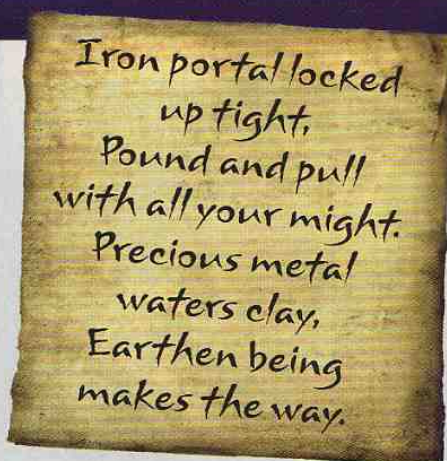 Iron portal locked
up tight,
Pound and pull
with all your might.
Precious metal
waters clay,
Earthen being
makes the way.